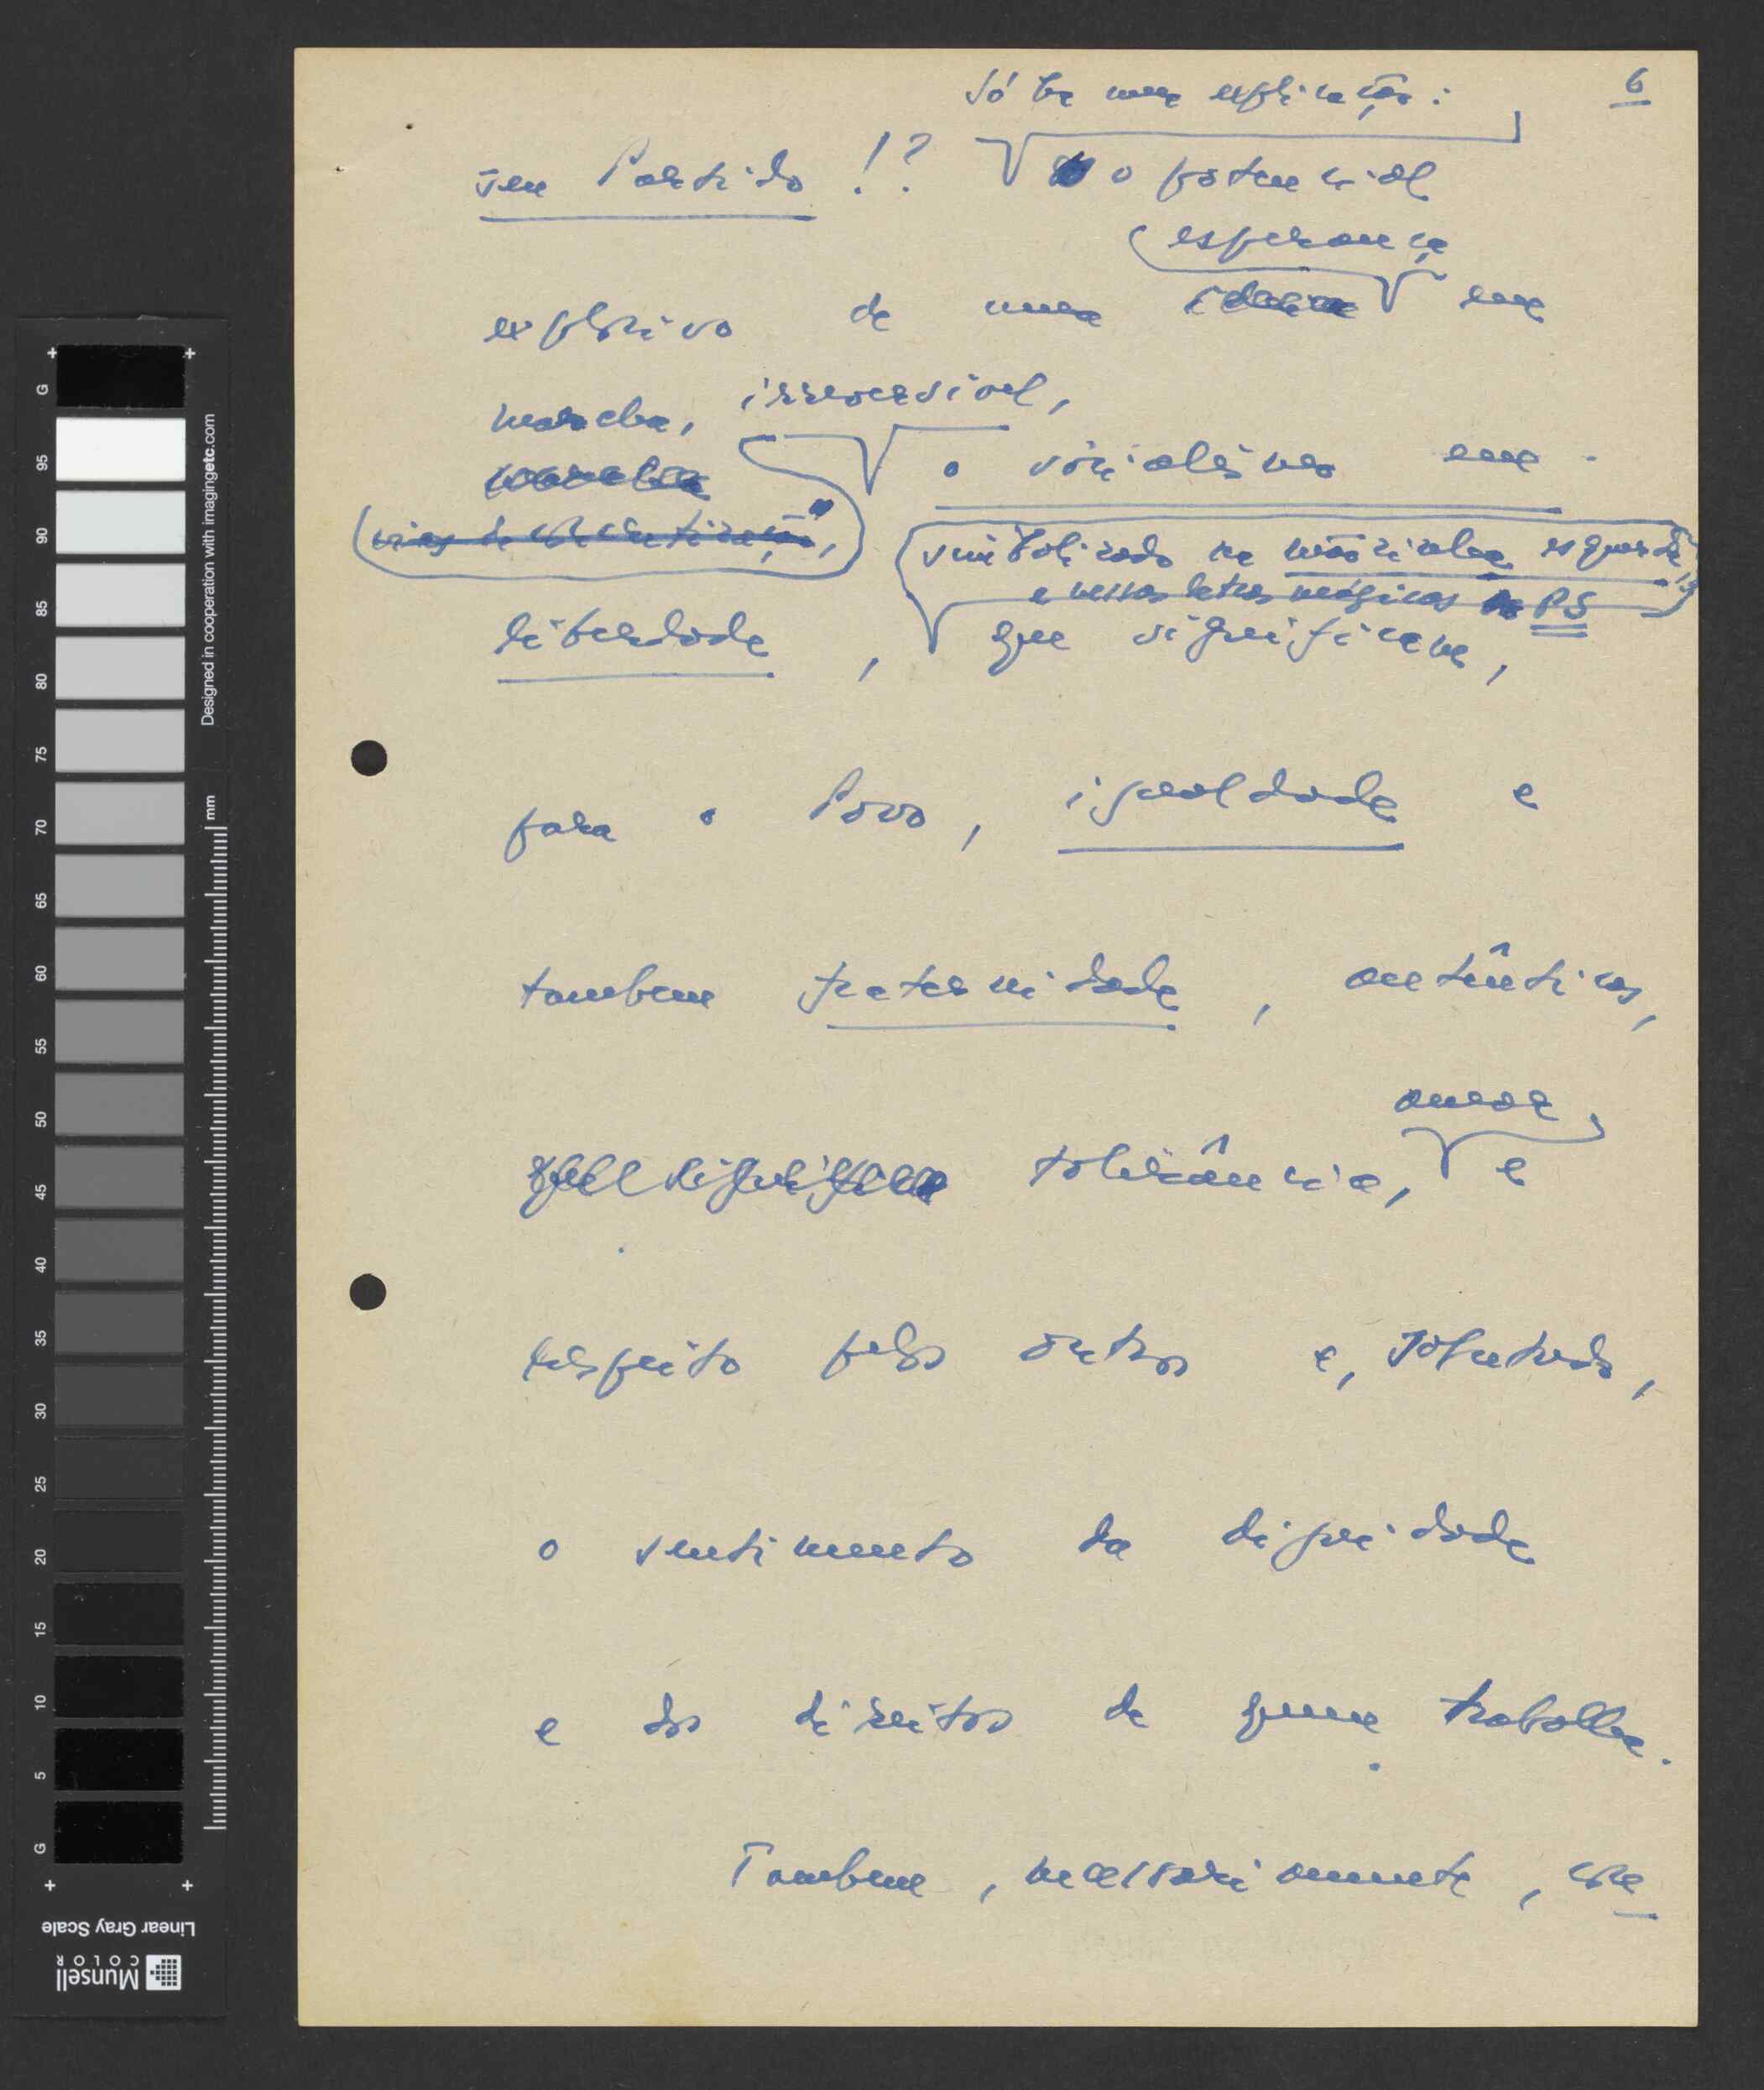 6
Só há uma explicação:
seu Partido !? o potencial
esperança
explosivo de uma ideia em
marcha, irreversível,
marcha
o socialismo em
vias de concretização,
simbolizado na mãozinha esquerda
e nessas letras mágicas PS
liberdade, que significam,
para o Povo, igualdade e
tambem fraternidade, autênticas,
amor
que significa tolerância, e
respeito pelos outros e, sobretudo,
o sentimento da dignidade
e dos direitos de quem trabalha.
Tambem, necessariamente,
G
95
90
85
80
75
70
65
60
55
50
45
40
35
30
25
20
15
10
5
G
mm
Designed in cooperation with imagingetc.com
Linear Gray Scale
Munsell
COLOR